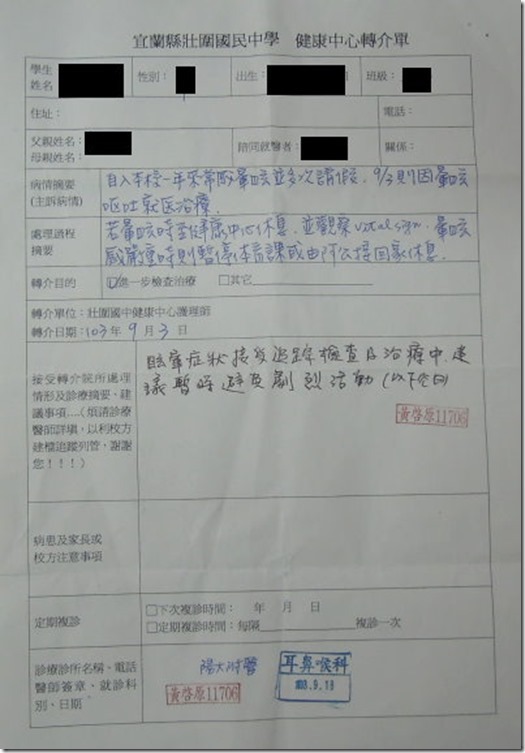 宜蘭縣壯圍國民中學 健康中心轉介單
學生姓名 性別： 出生： 班級：
住址： 電話：
父親姓名： 陪同就醫者： 關係：
母親姓名：
病情摘要(主訴病情) 自入本校一年來常感暈眩並多次請假，9/3則因暈眩
嘔吐就医治療
處理過程摘要 若暈眩時至健康中心休息，並觀察vital sign，暈眩
感嚴重時則暫停体育課或由阿公接回家休息。
轉介目的 ☑進一步檢查治療 □其它
轉介單位：壯圍國中健康中心護理師
轉介日期：103年9月3日
接受轉介院所處理
情形及診療摘要、建
議事項....（煩請診療
醫師詳填，以利校方
建檔追蹤列管、謝謝
您！！！）
眩暈症狀接受追蹤檢查及治療中，建
議暫時避免劇烈活動（以下空白）
黃啓原11706
病患及家長或
校方注意事項
定期複診
□下次複診時間： 年 月 日
□定期複診時間：每隔 複診一次
診療診所名稱、電話
醫師簽章、就診科
別、日期
陽大附醫
黃啓原11706
耳鼻喉科
103.9.18